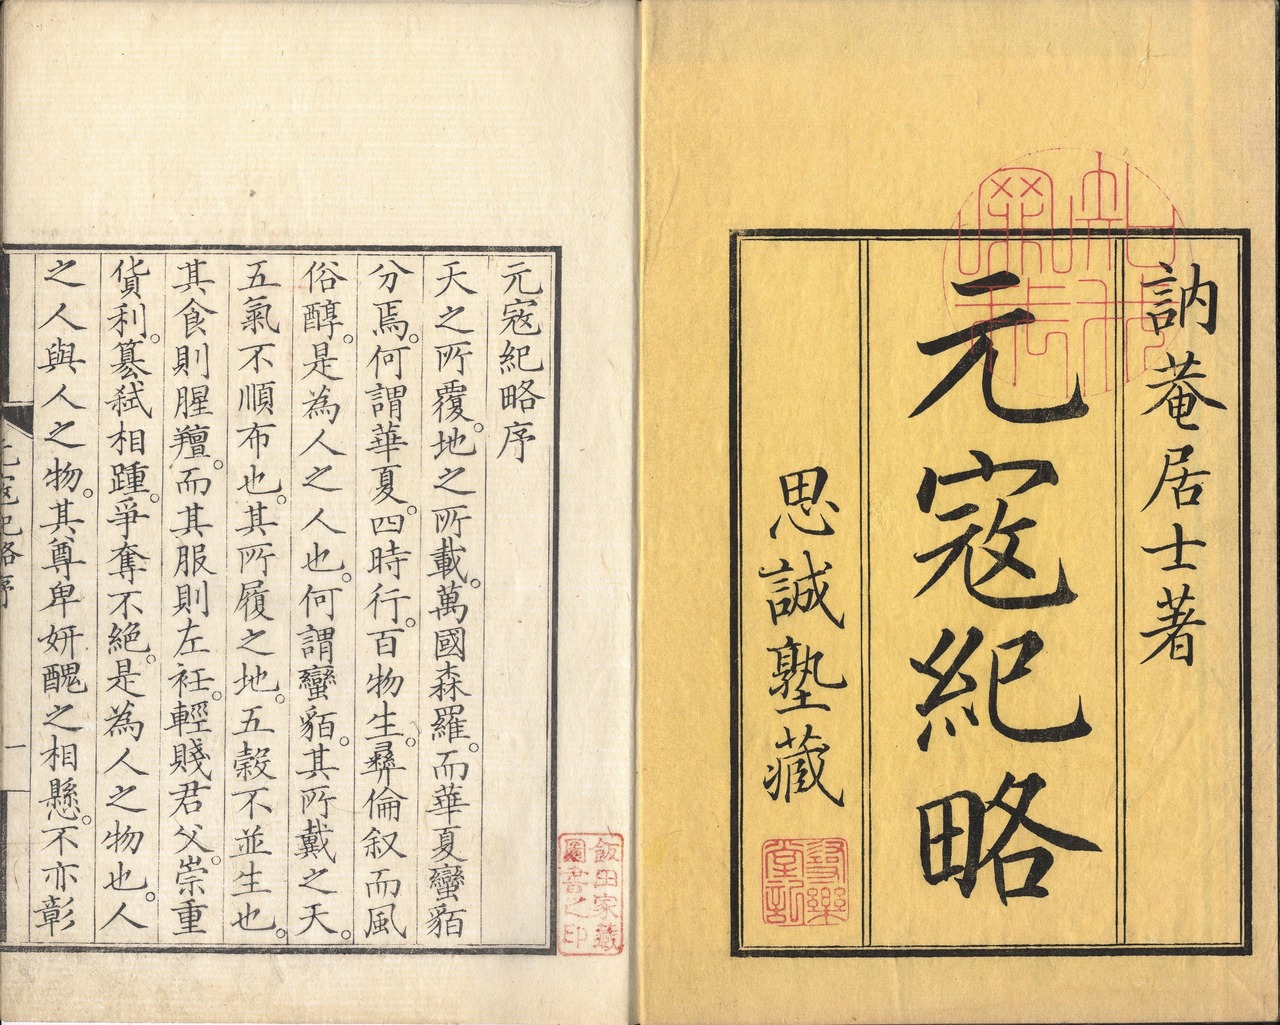 訥菴居士著
元寇紀略
思誠塾藏
元寇紀略序
天之所覆。地之所載。萬國森羅。而華夏蠻貊
分焉。何謂華夏。四時行。百物生。彝倫叙而風
俗醇。是為人之人也。何謂蠻貊。其所戴之天。
五氣不順布也。其所履之地。五穀不並生也。
其食則腥羶。而其服則左衽。輕賤君父。崇重
貨利。簒弑相踵。爭奪不絕。是為人之物也。人
之人與人之物。其尊卑妍醜之相懸。不亦彰
元寇紀略序
一
飯田家藏
圖書之印